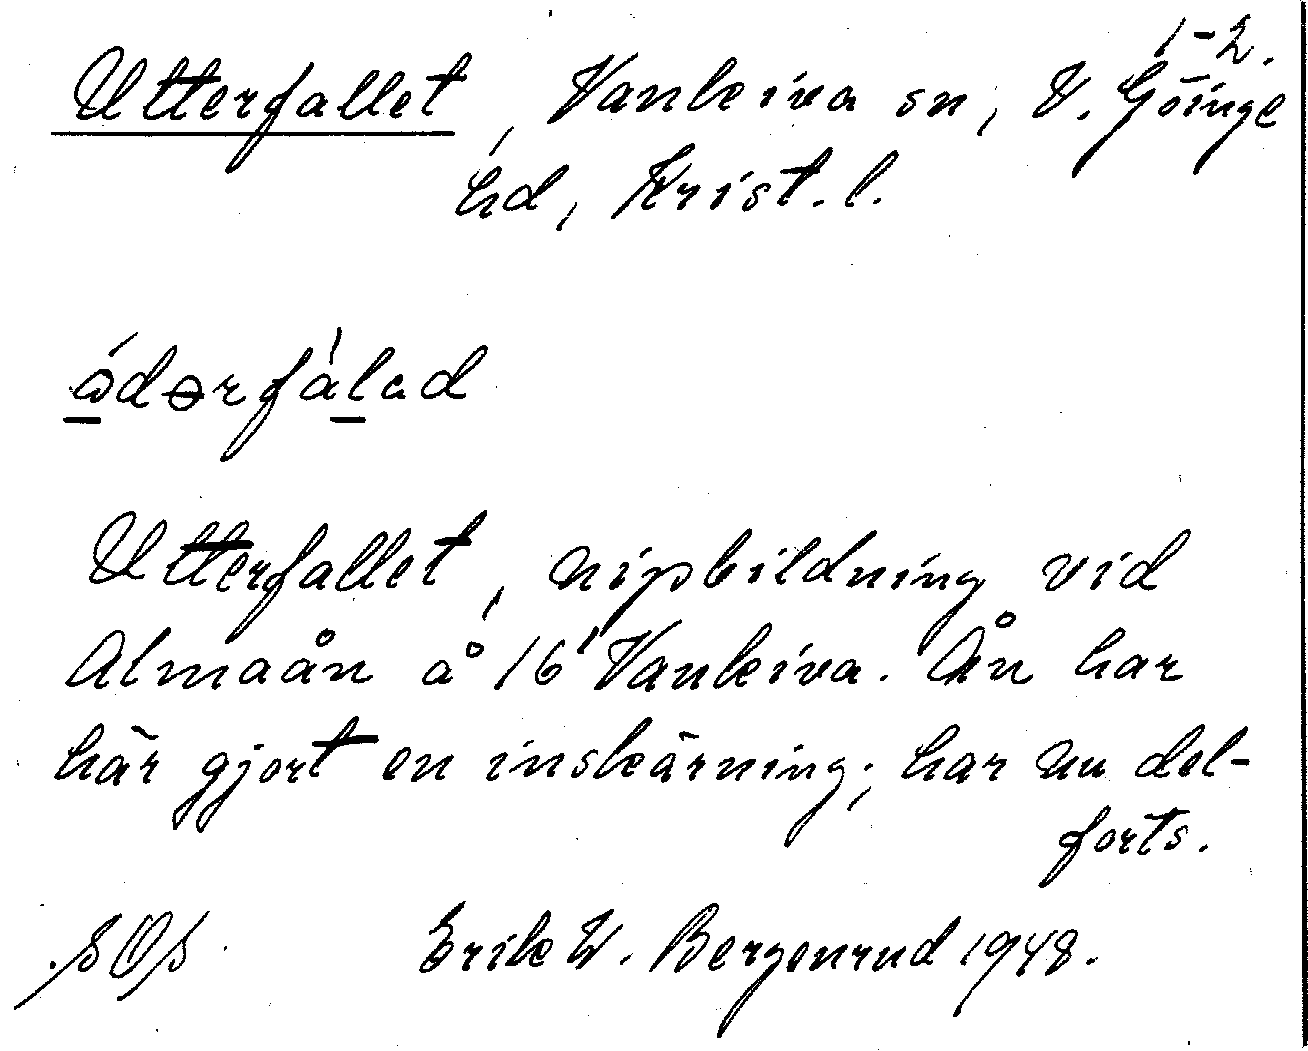 1-2.
Utterfallet, Vankiva sn, V. Göinge
hd, Krist. l.
ǻdərfàlad
Utterfallet, nipbildning vid
Almaån å 16' Vankiva. Ån har
här gjort en inskärning; har nu del-
forts.
SOS Erik W. Bergenrud 1948.